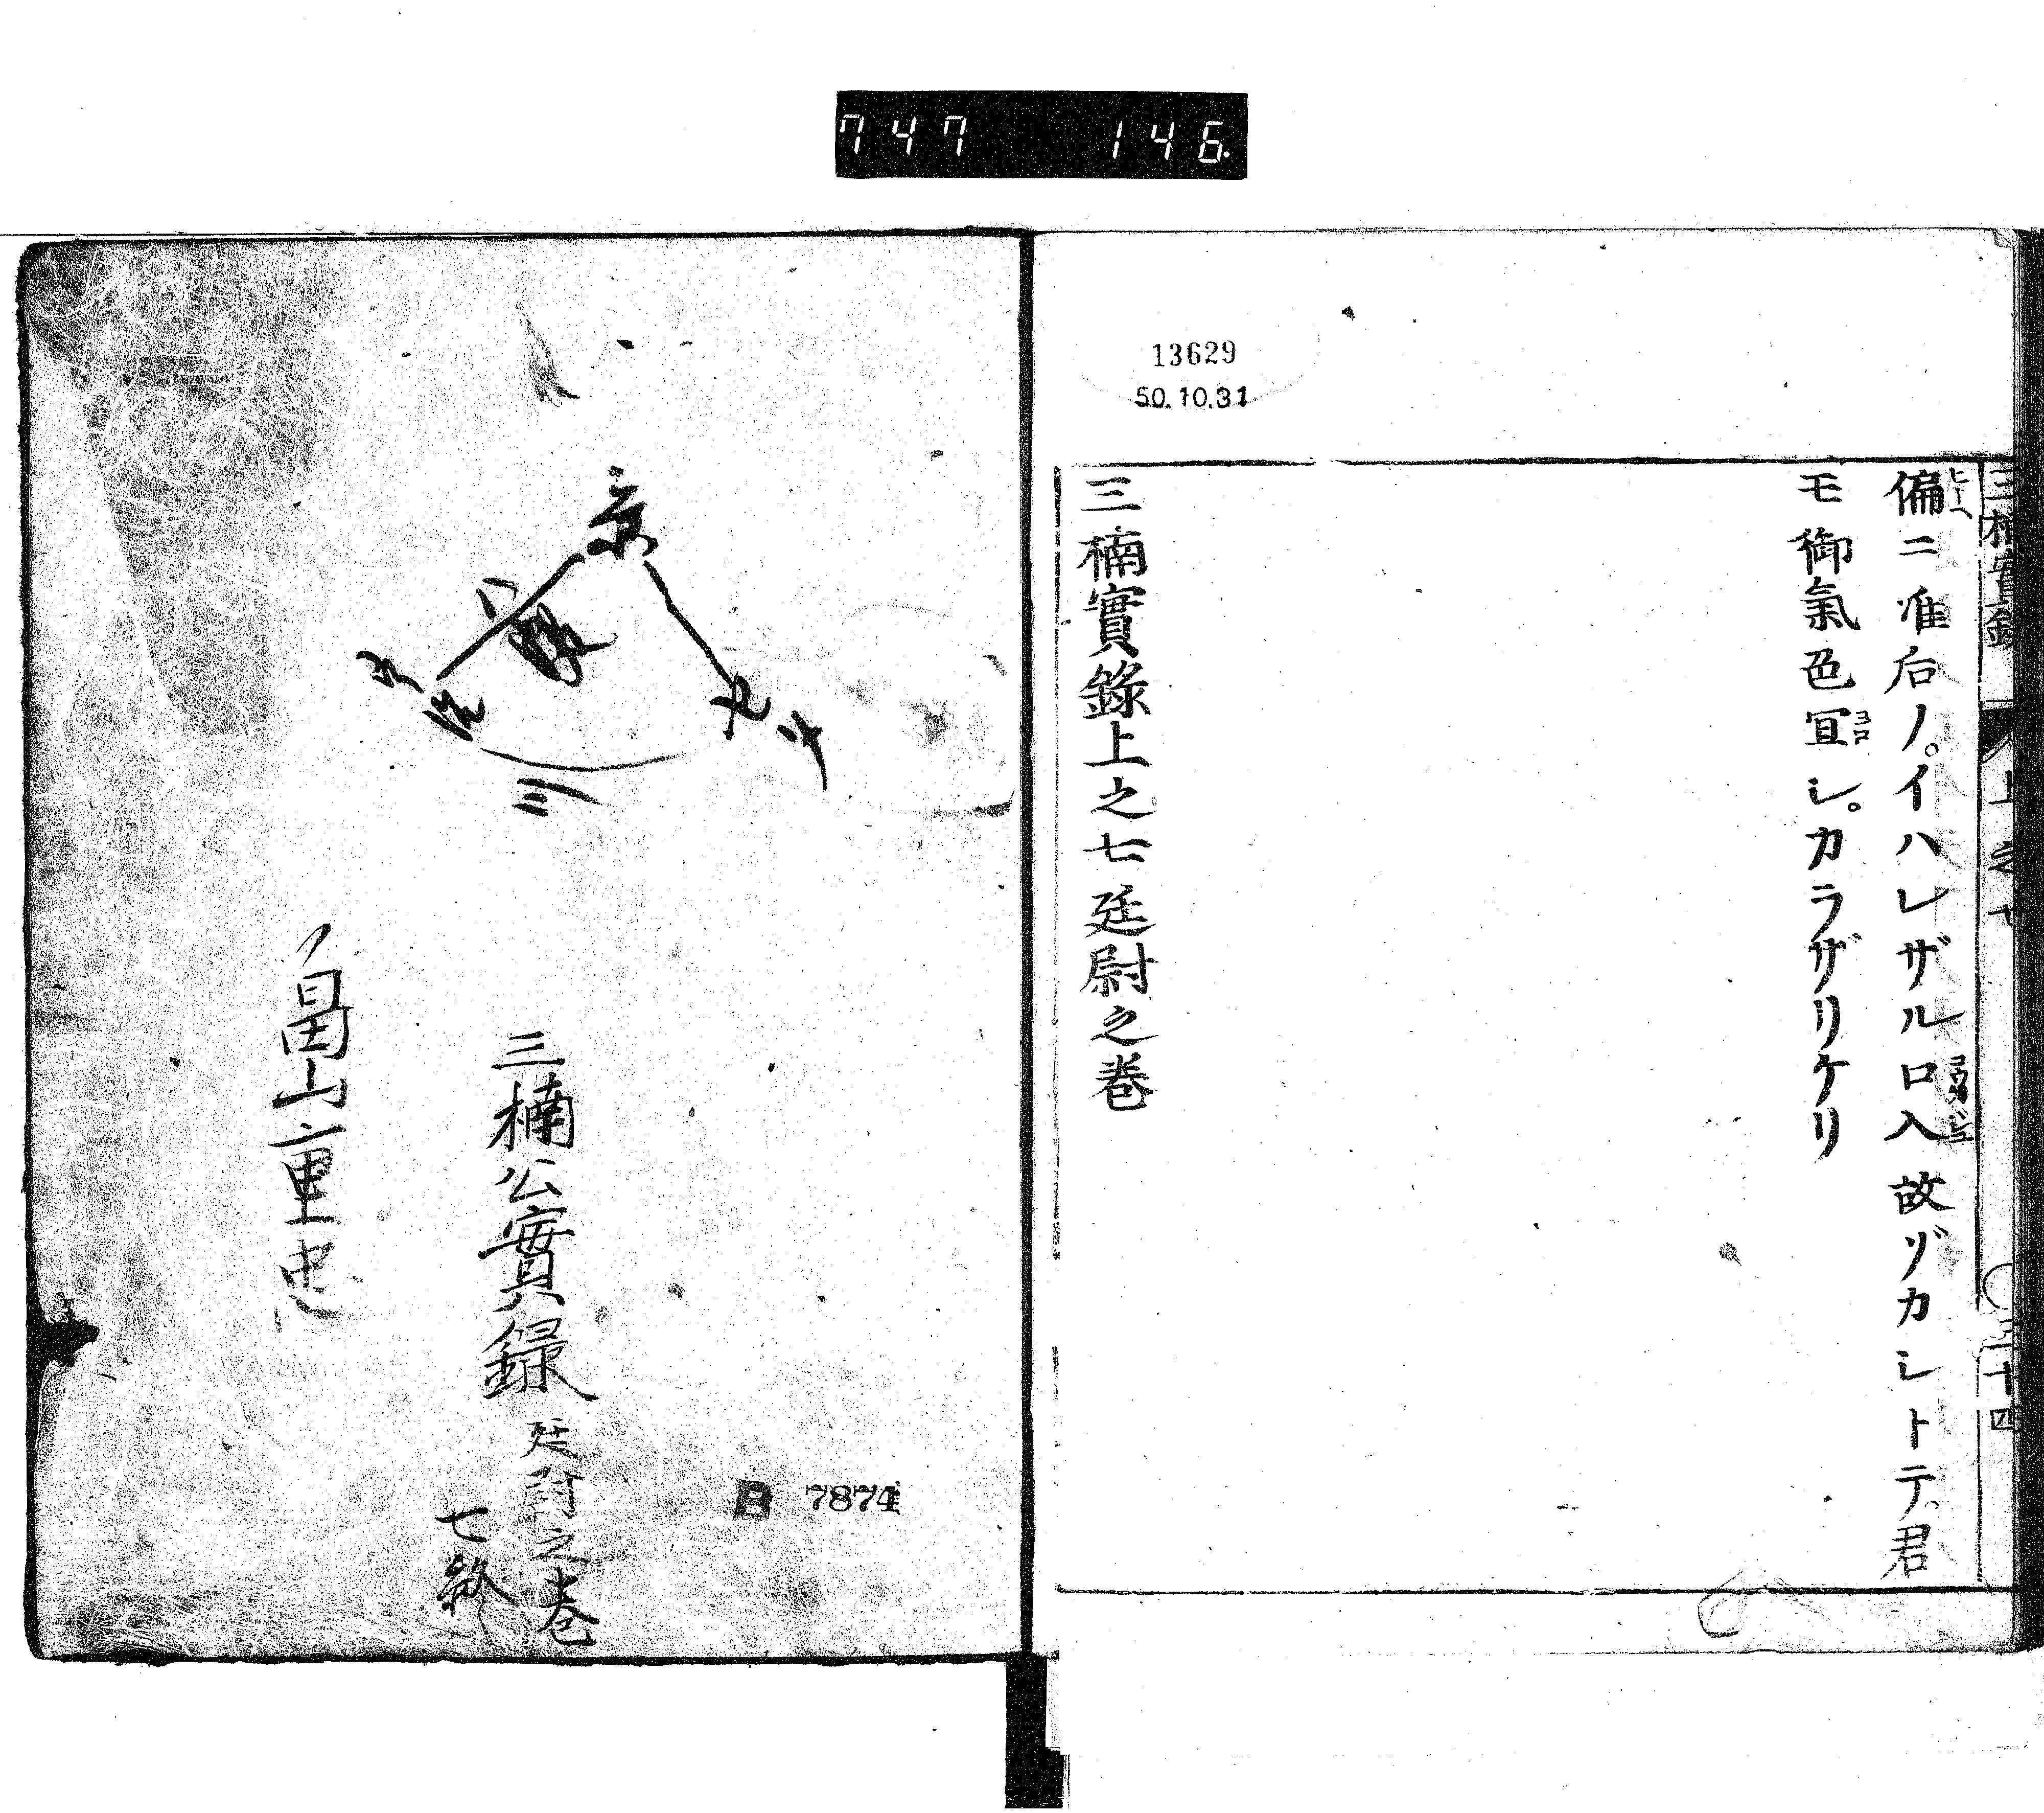 747 146.
13629
50.10.31
三楠實錄 上之七 三十四
偏ニ准后ノ。イハレザル口入故ゾカシトテ。君
モ御氣色宜シ。カラザリケリ
三楠實錄上之七廷尉之卷
京
三
三楠公實録 廷尉之巻
七終
畠山重忠
B 7874